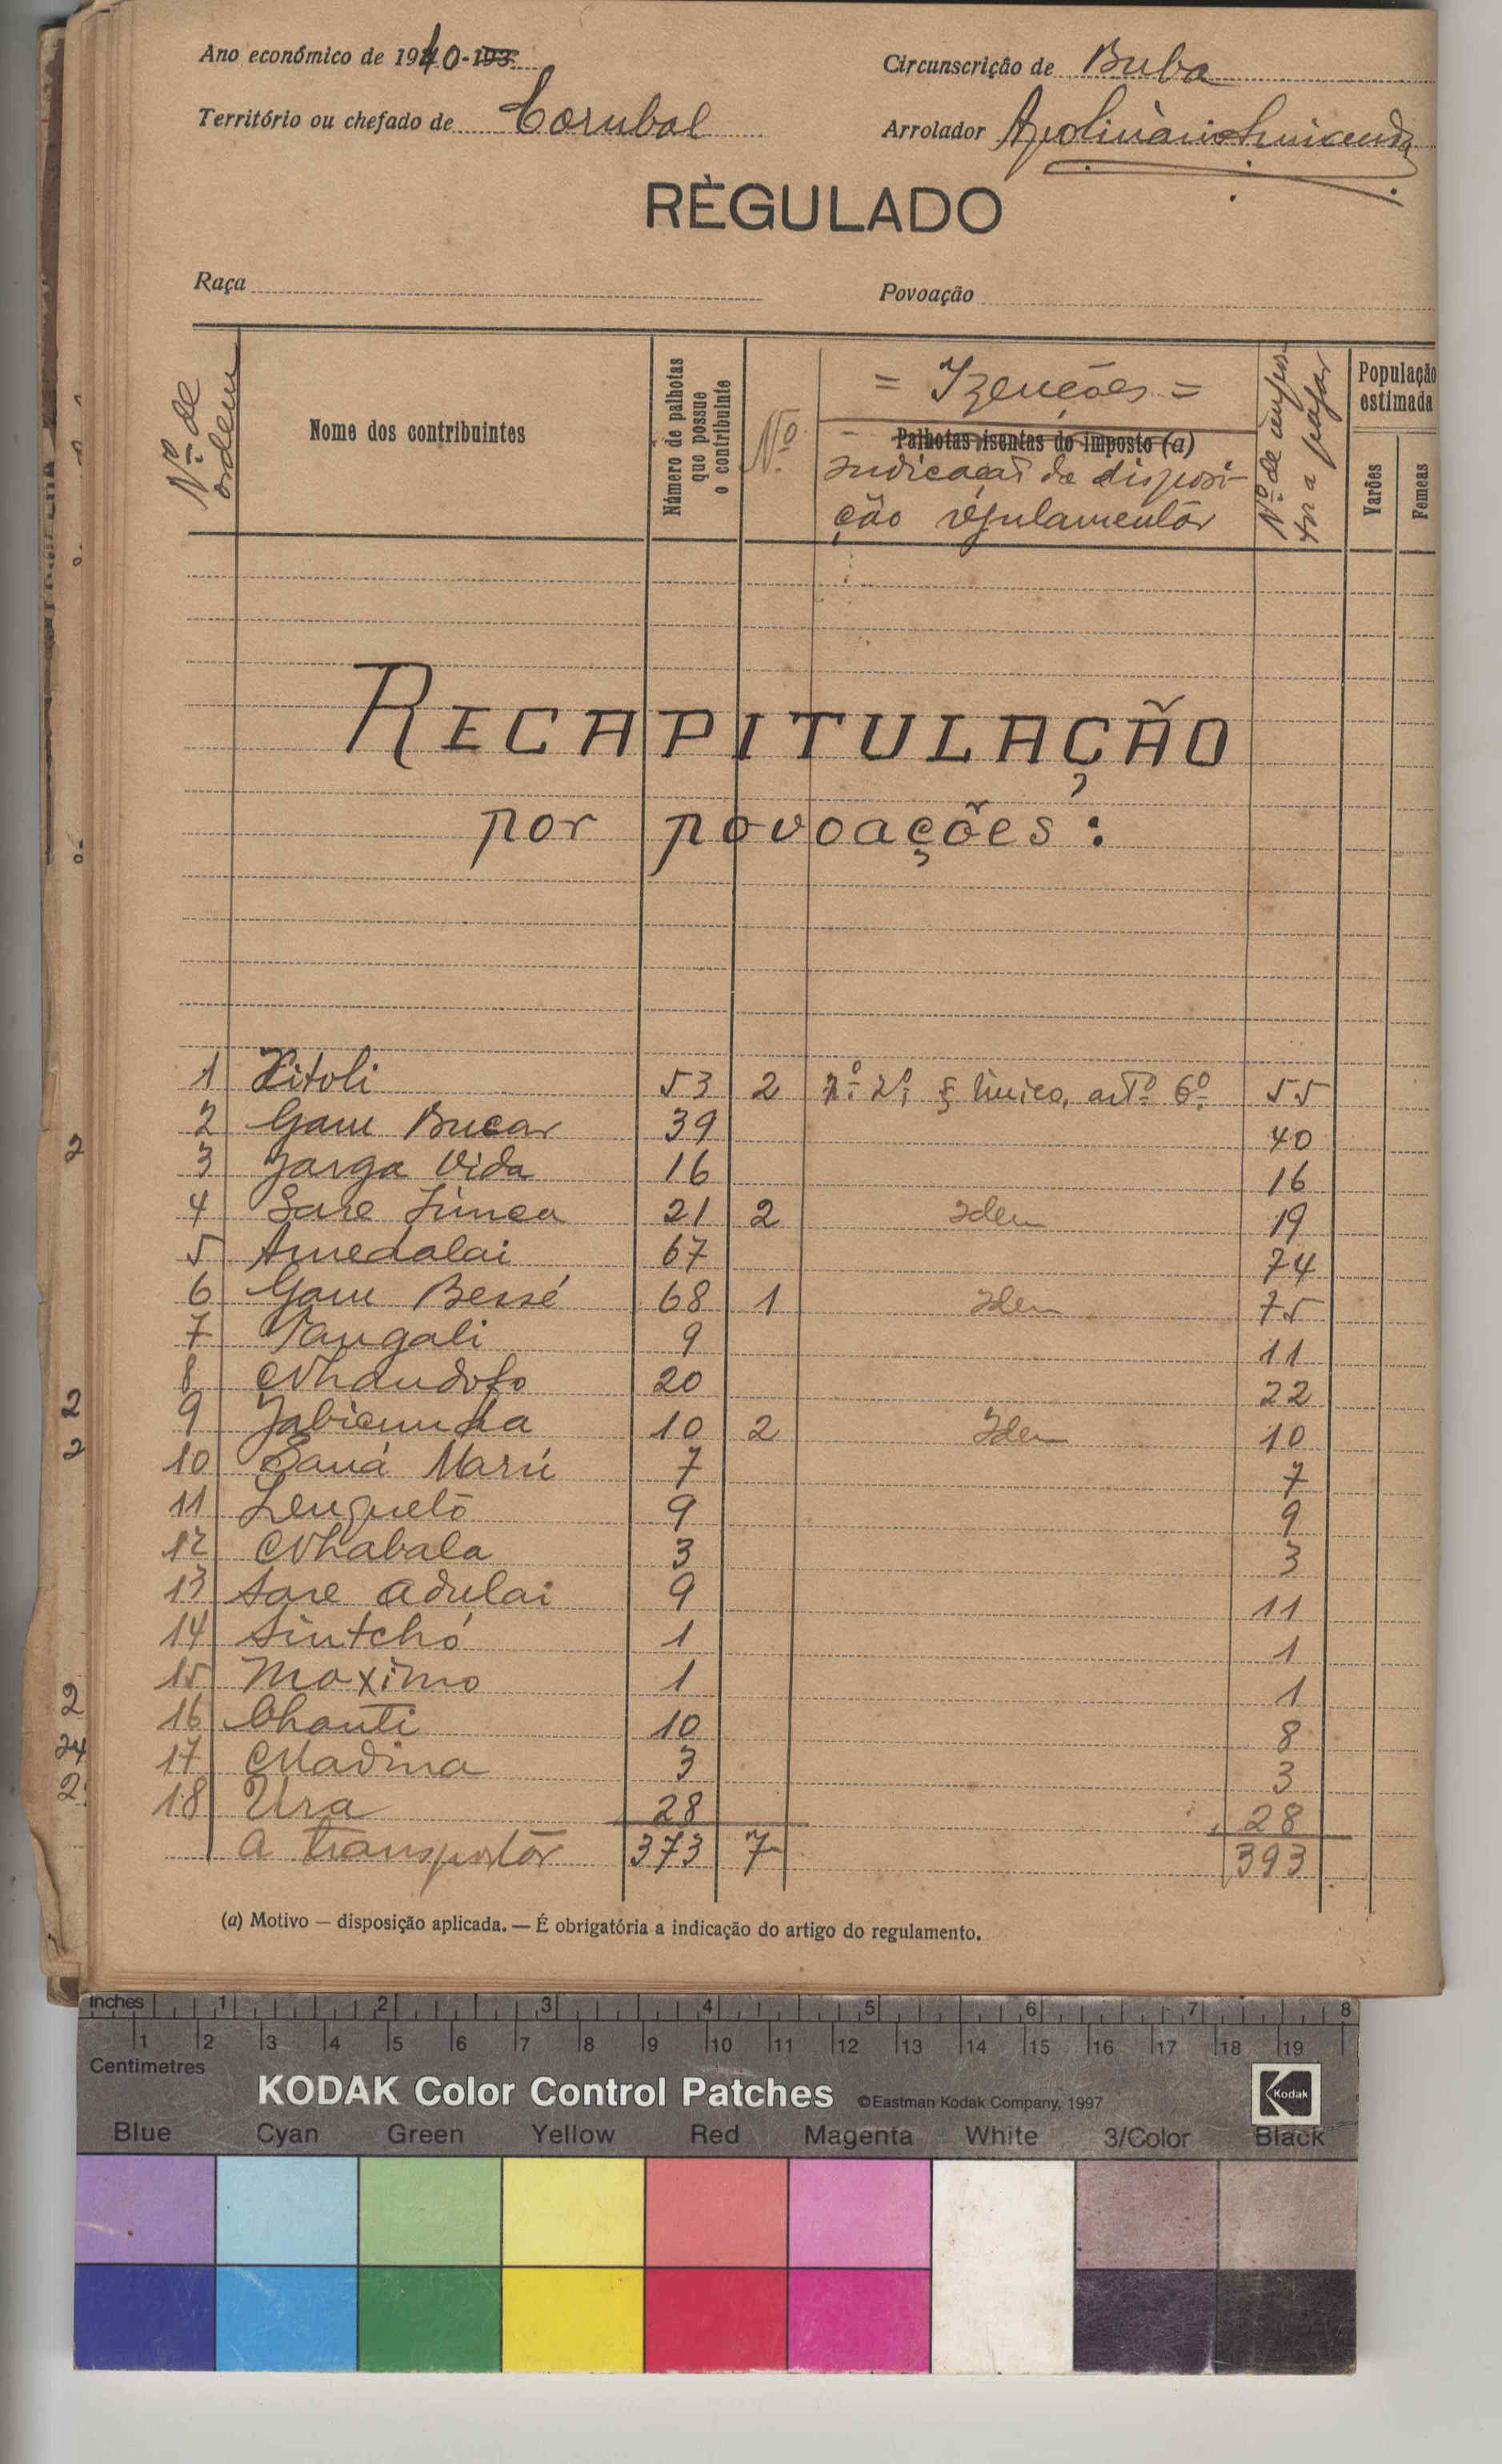 Ano económico de 1940-193
Circunscrição de Buba
Território ou chefado de Corubal
Arrolador Apolinário
RÈGULADO
Raça
Povoação
Nº de ordem
Nome dos contribuintes
Número de palhotas que possue o contribuinte
Nº
= Izenções =
Palhotas isentas do imposto (a)
Indicação da disposi-
ção regulamentar
Nº de impos-
tos a pagar
População estimada
Varões
Femeas
RECAPITULAÇÃO
por povoações:
1 Xitoli 53 2 nº 2º, § único, artº 6º 55
2 Gam Bucar 39 40
3 Jarga Vida 16 16
4 Sare 21 2 Idem 19
5 Amedalai 67 74
6 Gam Bessé 68 1 Idem 75
7 Tangali 9 11
8 20 22
9 10 2 Idem 10
10 Saná Marú 7 7
11 9 9
12 Nhabala 3 3
13 Sare Adulai 9 11
14 Sintchó 1 1
15 Maximo 1 1
16 Chanti 10 8
17 Madina 3 3
18 Ura 28 28
A transportar 373 7 393
(a) Motivo — disposição aplicada. — É obrigatória a indicação do artigo do regulamento.
2
2
2
2
24
2
Inches 1 2 3 4 5 6 7 8
1 2 3 4 5 6 7 8 9 10 11 12 13 14 15 16 17 18 19
Centimetres
KODAK Color Control Patches ©Eastman Kodak Company, 1997 Kodak
Blue Cyan Green Yellow Red Magenta White 3/Color Black